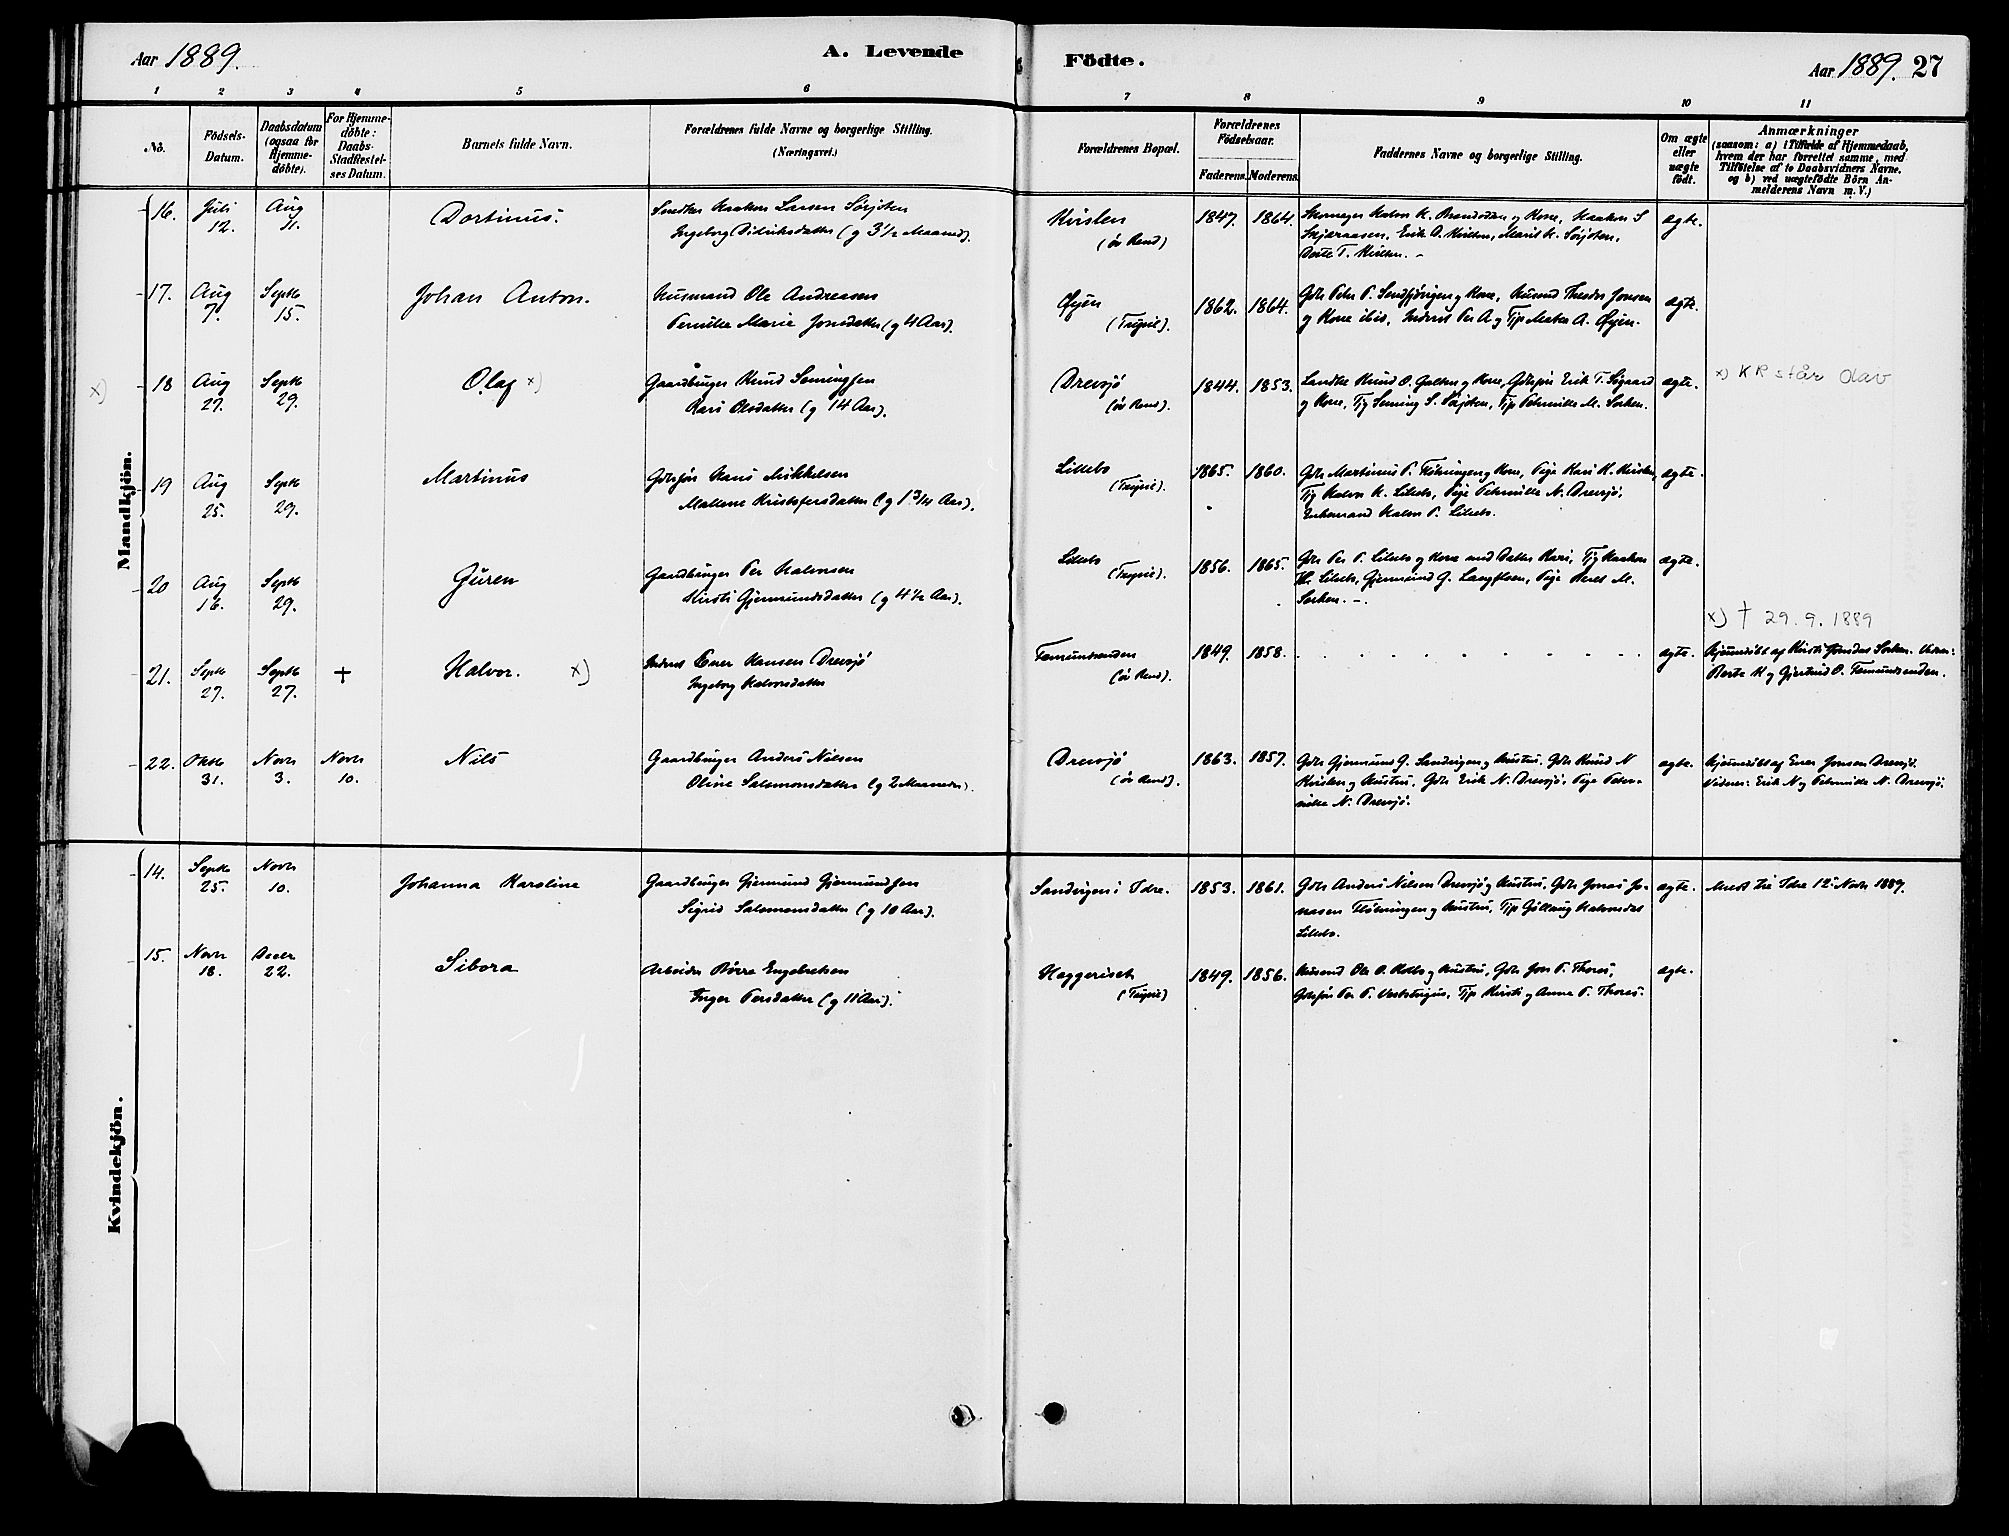 Aar 1889.
A. Levende
Födte.
Aar 1889. 27
1 2 3 4 5 6 7 8 9 10 11
No.
Födsels-
Datum.
Daabsdatum
(ogsaa for
Hjemme-
döbte).
For Hjemme-
döbte:
Daabs-
Stadfæstel-
ses Datum.
Barnets fulde Navn.
Forældrenes fulde Navne og borgerlige Stilling.
(Næringsvei.)
Forældrenes Bopæl.
Forældrenes
Födselsaar.
Faderens. Moderens.
Faddernes Navne og borgerlige Stilling.
Om ægte
eller
uægte
födt.
Anmærkninger
(saasom: a) i Tilfælde af Hjemmedaab,
hvem der har forrettet samme, med
Tilföielse af to Daabsvidners Navne.
og b) ved uægtefödte Börn An-
melderens Navn m. V.)
Mandkjön.
16. Juli 12. Aug 11. Dortinus.
Haakon Larsen Sörjoten
Ingeborg Didriksdatter (g 3 1/2 Maaned).
Kvislen
(öv Rend)
1847. 1864.
Halvor K. og Kone, Haakon S
Erik O. Kvislen, Marit K. Sörjoten,
Dorte T. Kvislen. -
ægte.
17. Aug 7. Septb 15. Johan Anton.
Husmand Ole Andreasen
Pernille Marie Jonsdatter (g 4 Aar).
Öyen
(Trysil).
1862. 1864.
Gdr Peter P. og Kone, Husmd Theodor Jonsen
og Kone ibid, Inderst Per A og Tjp Marten A. Öyen.
ægte.
x) 18 Aug 27. Septb 29. Olaf x)
Gaardbruger Knud Semingsen
Kari Olsdatter (g 14 Aar).
Drevsjö
(öv Rend).
1844. 1853.
Landhr Knud O. Galten og Kone, Gdrsjön Erik T. Sögaard
og Kone, Tjg Seming S. Sörjoten, Tjp Pernille M. Sorken.
ægte.
x) KR står Olav
19 Aug 25. Septb 29. Martinus
Gdrsön Hans Mikkelsen
Mallene Kristofersdatter (g 1 3/12 Aar).
Lillebo
(Trysil).
1865. 1860.
Gdr Martinus P. Flötningen og Kone, Pige Kari K. Kvislen,
Tjg Halvor K. Lillebo, Pige Pernille N. Drevsjö,
Enkemand Halvor P. Lillebo.
ægte.
20 Aug 16. Septb 29. Guren
Gaardbruger Per Halvorsen
Kirsti Gjermundsdatter (g 4 1/2 Aar).
Lillebo
(Trysil).
1856. 1865.
Gdr Per P. Lillebo og Kone med Datter Kari, Tjg Haakon
H. Lillebo, Gjermund G. Langfloen, Pige Beret M.
Sorken. -.
ægte.
21. Septb 27. Septb 27. + Halvor. x)
Inderst Ener Hansen Drevsjö
Ingeborg Halvorsdatter
Femundsenden
(öv Rend).
1849. 1858.
ægte.
x) † 29.9.1889
Hjemmdöbt af Kirsti Jonsdat Sorken. Vidner:
Berte K og Gjertrud O. Femundsenden.
22. Oktb 31. Novb 3. Novb 10. Nils
Gaardbruger Anders Nilsen
Oline Salomonsdatter (g 2 Maaneder).
Drevsjö
(öv Rend).
1863. 1857.
Gdr Gjermund G. Sandvigen og Hustru, Gdr Knud N
Kvislen og Hustru, Gdr Erik N. Drevsjö, Pige Peter-
nille N. Drevsjö.
ægte.
Hjemmdöbt af Ener Jonsen Drevsjö.
Vidner: Erik N og Pernille N. Drevsjö.
Kvindekjön.
14. Septb 25. Novb 10. Johanna Karoline
Gaardbruger Gjermund Gjermundsen
Sigrid Salomonsdatter (g 10 Aar).
Sandvigen i Idre.
1853. 1861.
Gdr Anders Nilsen Drevsjö og Hustru, Gdr Jonas Jo-
nasen Flötningen og Hustru, Tjp Gölloug Halvorsdat
Lillebo.
ægte.
Meldt til Idre 12. Novb 1889.
15. Novb 18. Decbr 22. Sibora
Arbeider Börre Engebretsen
Inger Persdatter (g 11 Aar).
Haggeriset
(Trysil)
1849. 1856.
Husmd Ole O. og Hustru, Gdr Jon P. Thores,
Gdrsön Per P. Tjp Kirsti og Anne P. Thores.
ægte.